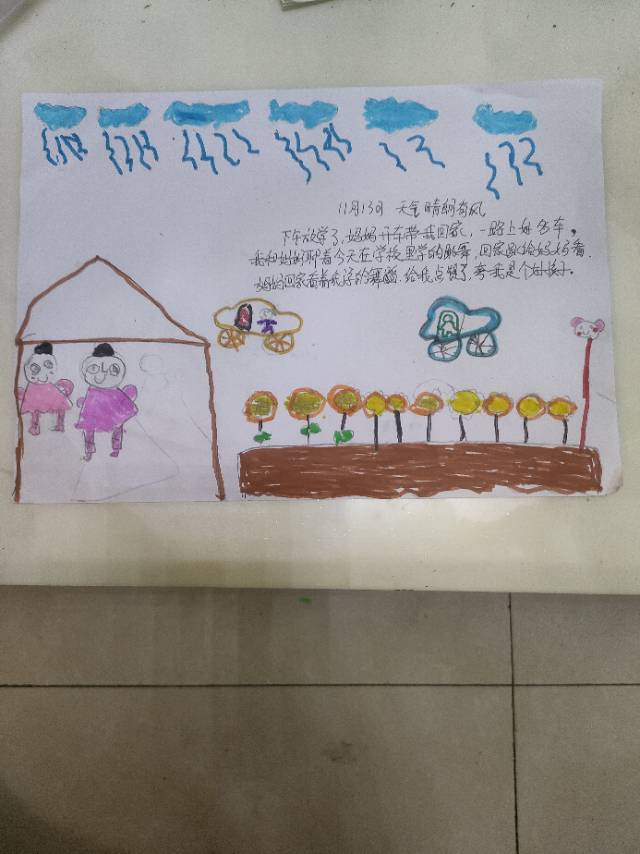 11月13日 天气晴朗有风
下午放学了,妈妈开车带我回家,一路上好多车,
我和妈妈聊着今天在学校里学的跳舞,回家跳给妈妈看.
妈妈回家看着我的舞蹈.给我点赞了.夸我是个好孩子.